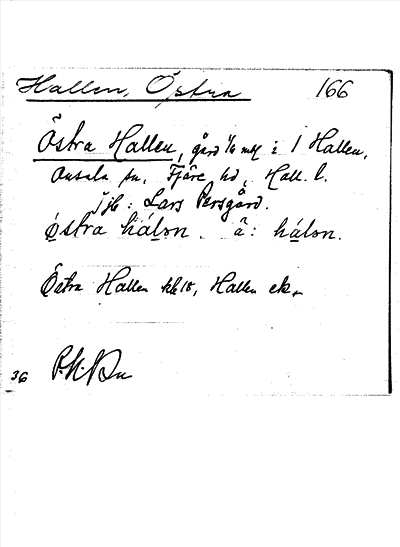 Hallen, Östra 166
Östra Hallen, gård 1/6 mtl i 1 Hallen,
Onsala sn, Fjäre hd, Hall. l.
jfr: Lars Persgård.
östra hálon. ä: hálon.
Östra Hallen kbr, Hallen ek.
36